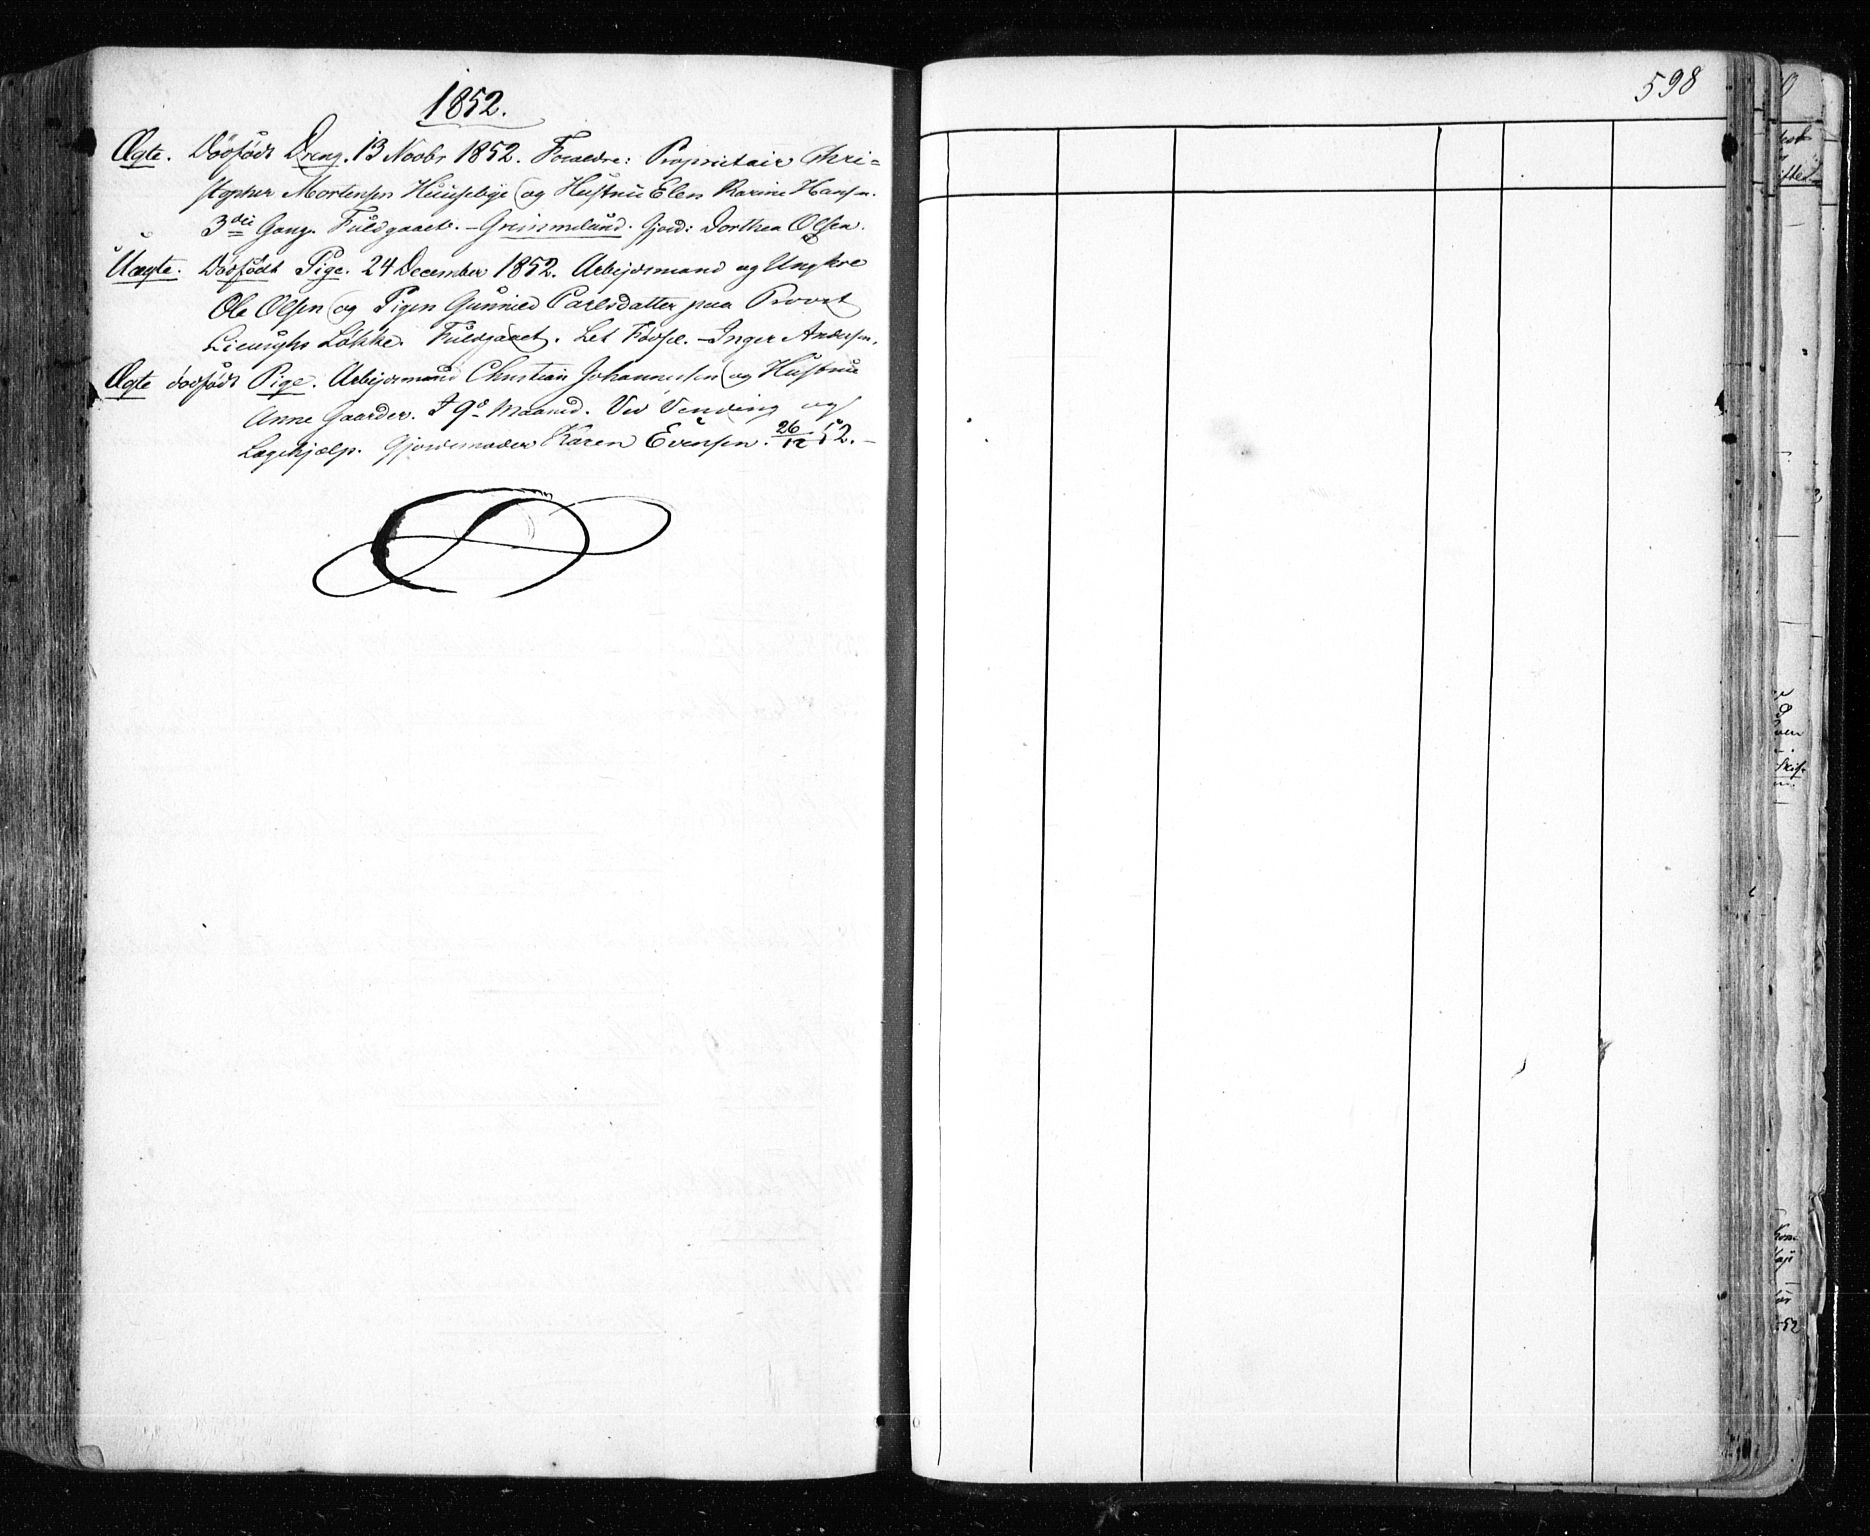 1852.
Ægte. Dödfödt Dreng. 13 Novbr 1852. Forældre: Proprietair Chri=
stopher Mortensen Huuseby (og Hustrue Elen Karine Hansn.
3die Gang. Fuldgaaet. – Grimmelund. Gjord: Dorthea Olsen.
Uægte. Dödfödt Pige. 24 December 1852. Arbejdsmand og Ungkre
Ole Olsen (og Pigen Gunnild Parlsdatter paa Provst
Lökke. Fuldgaaet. Let Födsel. – Inger Andersen.
Ægte dödfödt Pige. Arbejdsmand Christian Johannesen (og Hustrue
Anne Gaarder. I 9de Maaned. Ved Vending og
Lægehjælp. Gjordemoder Karen Evensen. 26/12 52. –
598